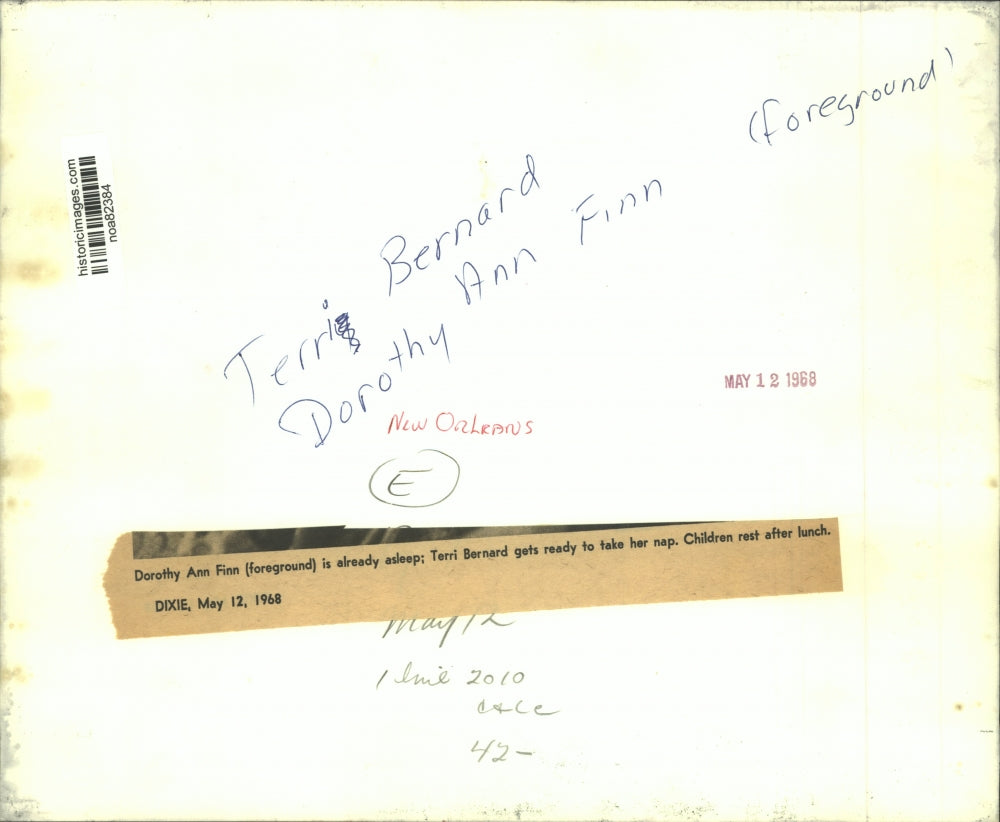 (foreground)
historicimages.com
noa82384
Terri Bernard
Dorothy Ann Finn
MAY 12 1968
New Orleans
E
Dorothy Ann Finn (foreground) is already asleep; Terri Bernard gets ready to take her nap. Children rest after lunch.
DIXIE, May 12, 1968
May 12
1 2010
42-